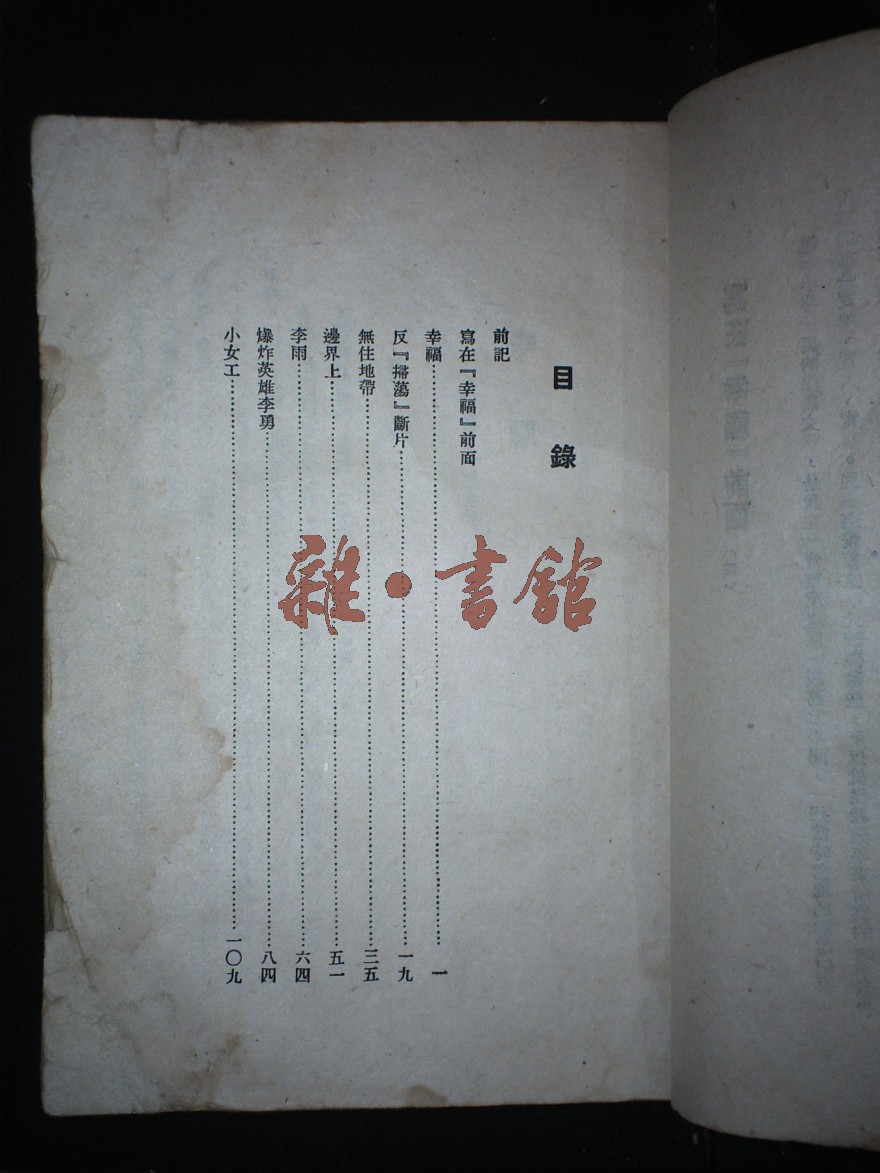 目錄
前記
寫在『幸福』前面
幸福……一
反『掃蕩』斷片……一九
無住地帶……三五
邊界上……五一
李雨……六四
爆炸英雄李勇……八四
小女工……一〇九
雜·書館